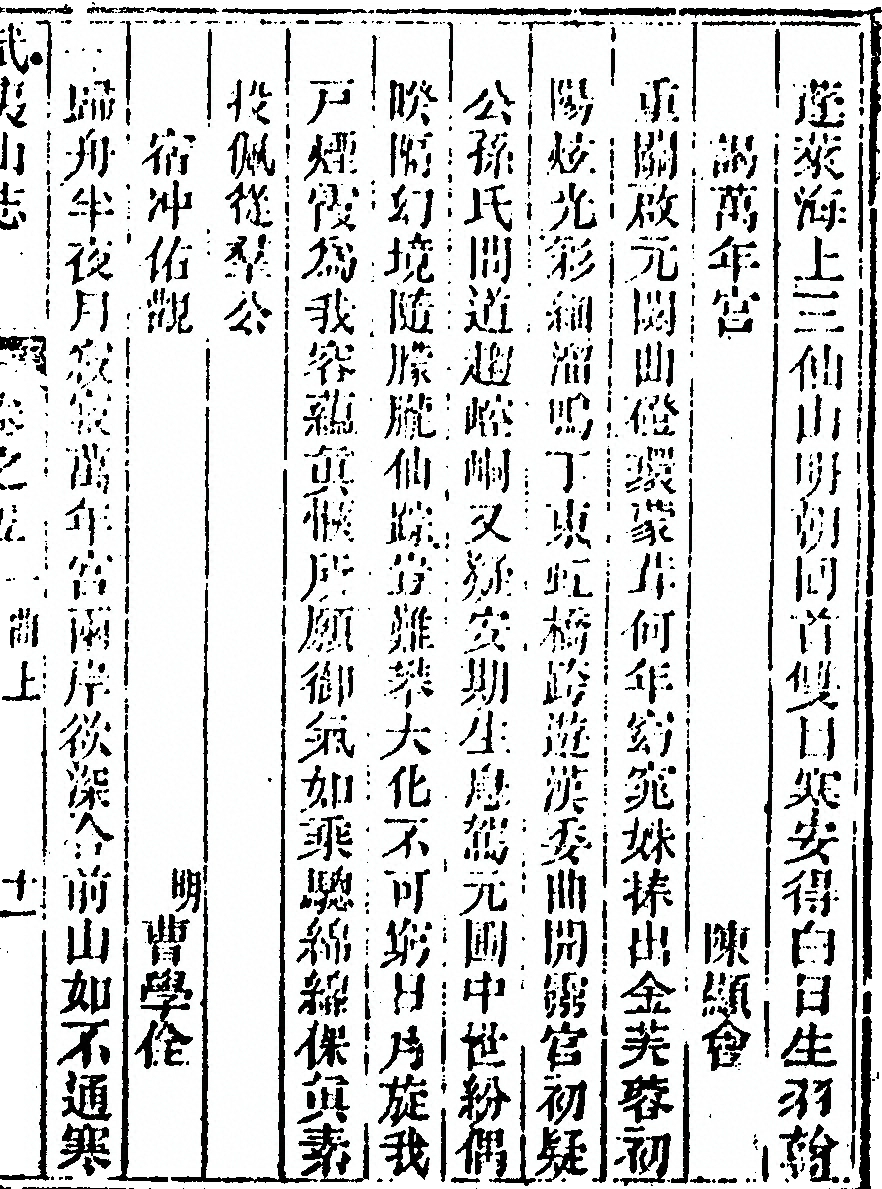 蓬萊海上三仙山明朝回首雙目寒安得白日生羽翰
謁萬年宮　陳顯會
重關啟元闕曲磴環蒙茸何年窈窕姝捧出金芙蓉初
陽炫光彩溜鳴丁東虹橋跨遊漢委曲開靈官初疑
公孫氏問道趨崆峒又疑安期生息駕元圃中世紛偶
暌隔幻境隨朦朧仙踪豈難攀大化不可窮日月旋我
戸煙霞為我容蘊真愜所願御氣如乘驄綿綿保真素
投佩從羣公
宿冲佑觀　明曹學佺
歸舟半夜月寂寂萬年宮兩岸欲深合前山如不通寒
武夷山志　卷之五　一曲上　十一